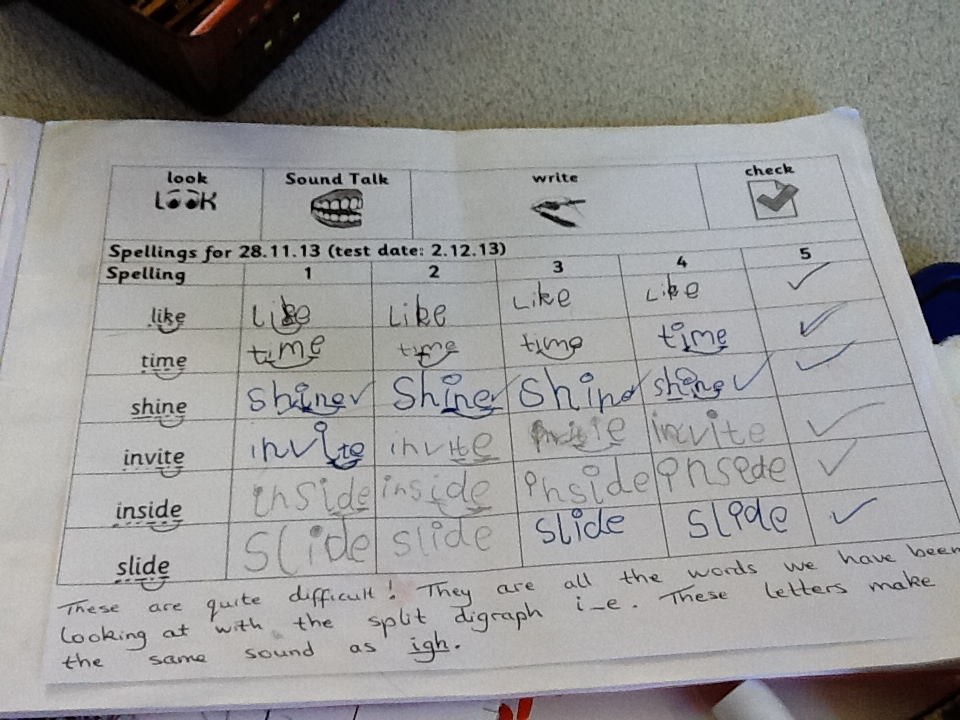 look Sound Talk write check
LOOK
Spellings for 28.11.13 (test date: 2.12.13)
Spelling 1 2 3 4 5
like Like Like Like Like
time time time time time
shine shine shine shine shine
invite invite invite invite
inside inside inside inside insede
slide slide slide slide slide
These are quite difficult! They are all the words we have been
looking at with the split digraph i_e. These letters make
the same sound as igh.